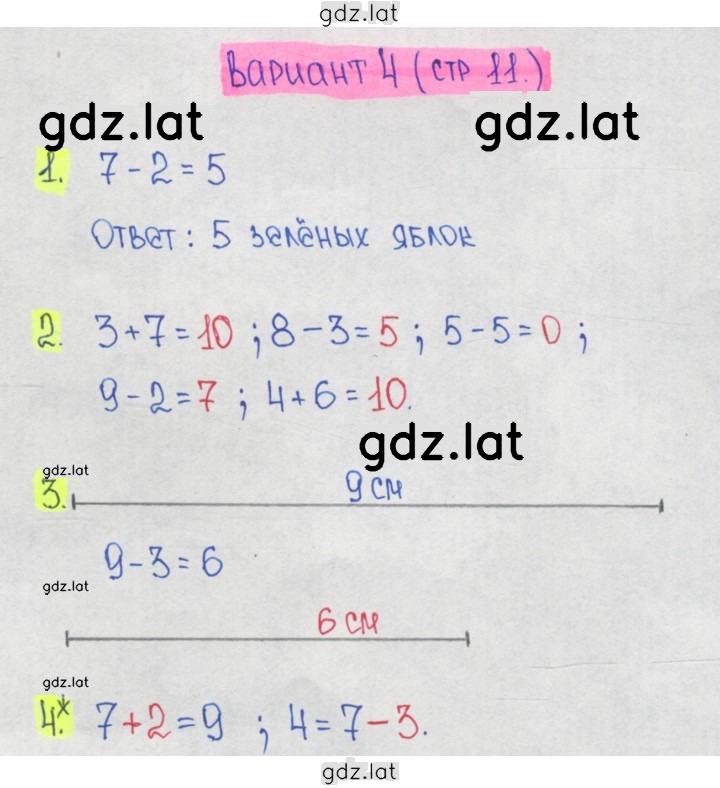 gdz.lat
Вариант 4 (стр 11.)
gdz.lat gdz.lat
1. 7-2=5
Ответ: 5 зелёных яблок
2. 3+7=10 ; 8-3=5 ; 5-5=0 ;
9-2=7 ; 4+6=10.
gdz.lat
gdz.lat
3. 9 см
9-3=6
gdz.lat
6 см
gdz.lat
4.* 7+2=9 ; 4=7-3.
gdz.lat